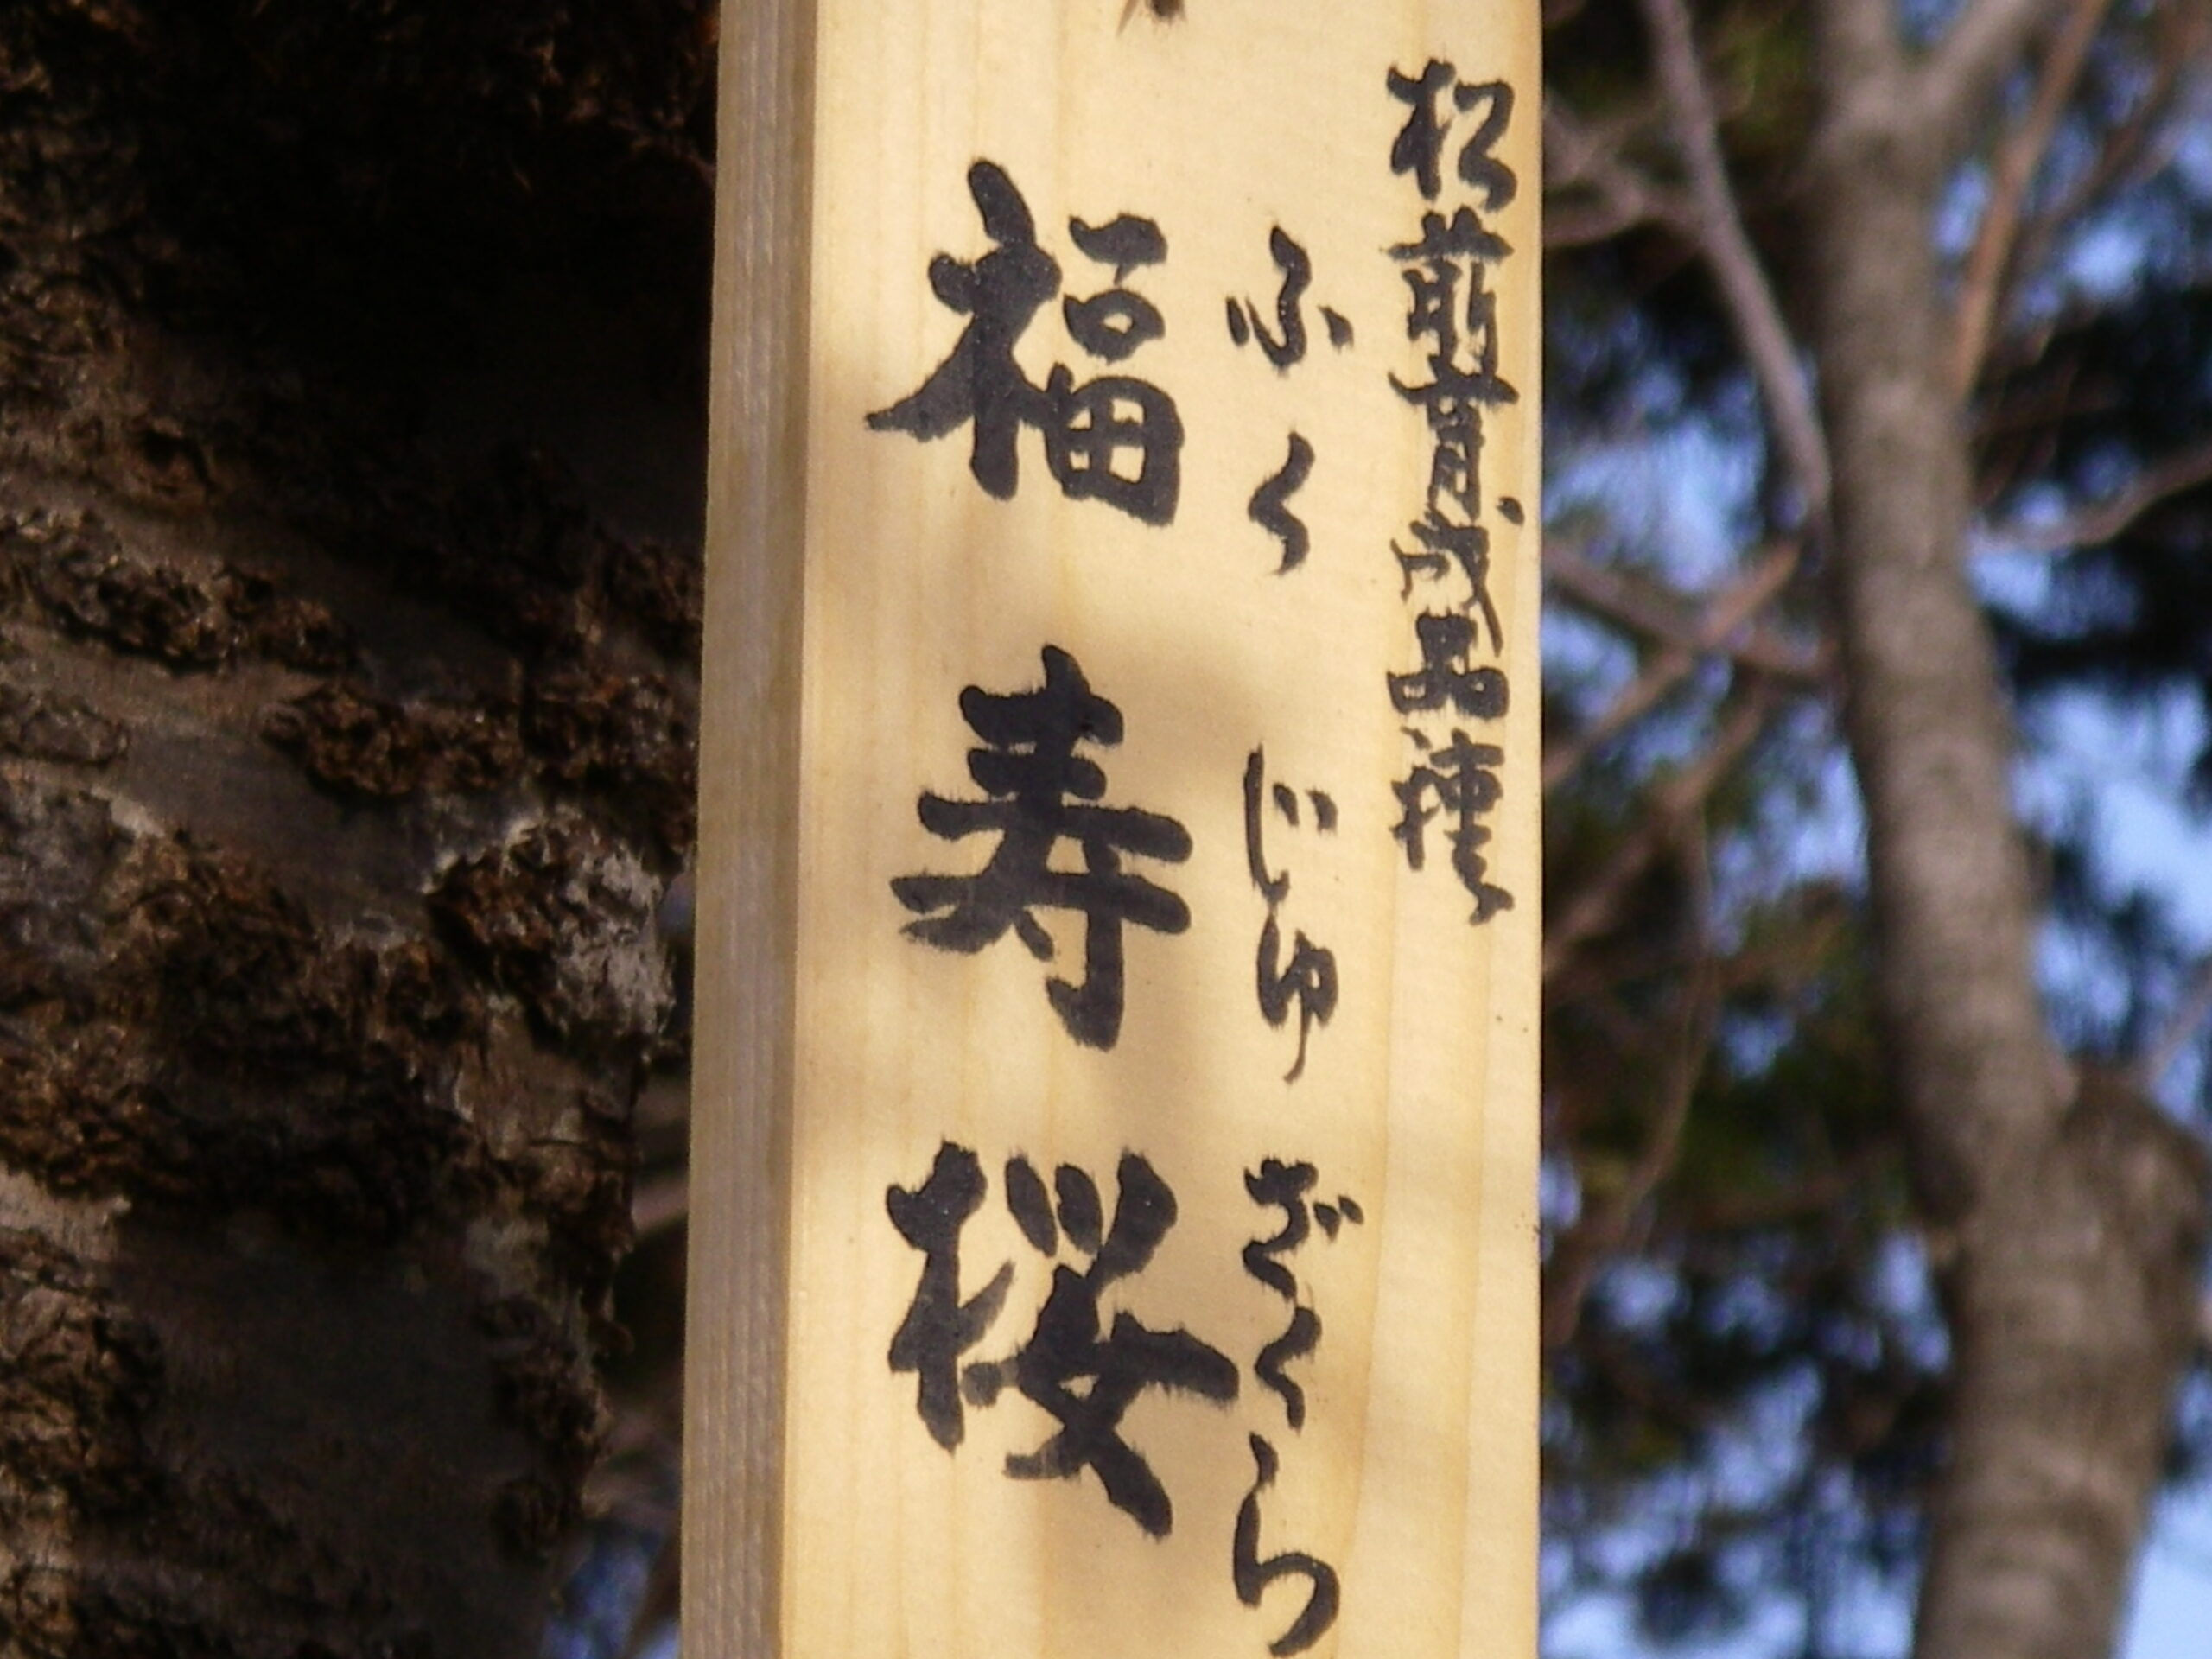 松前育成品種
ふくじゅざくら
福寿桜